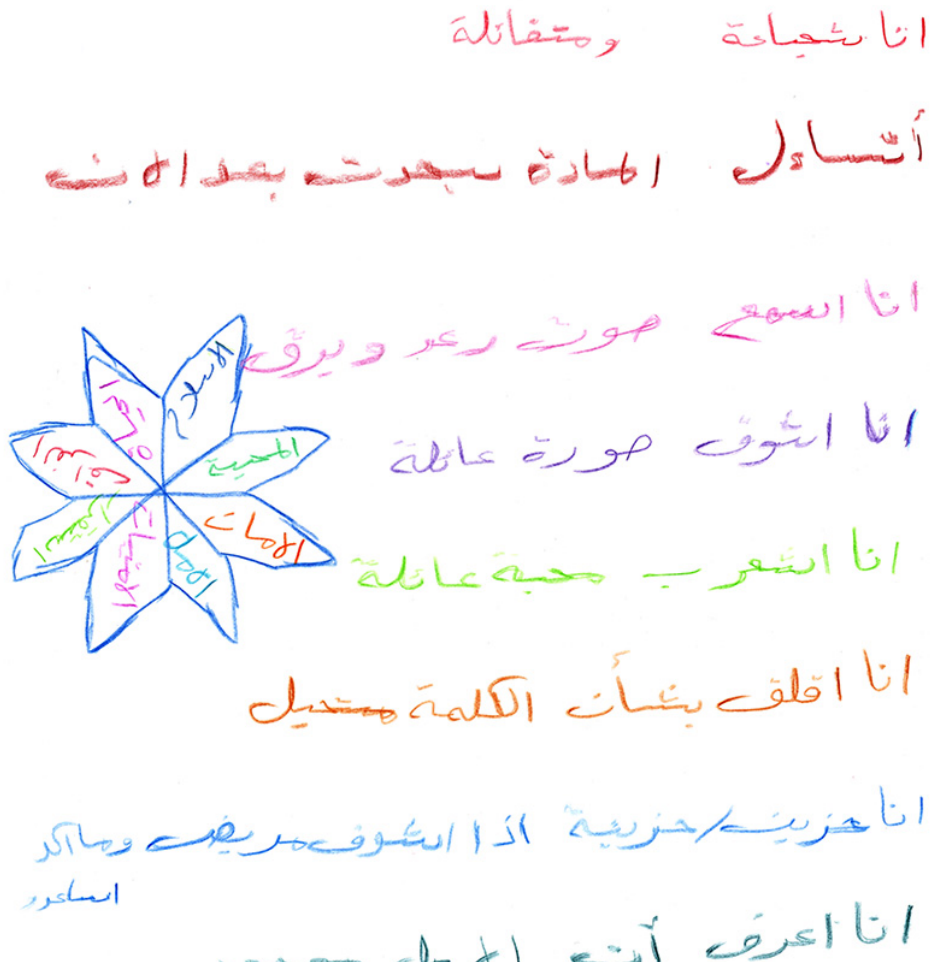 انا شجاعة ومتفائلة
أتساءل لماذة سيحدث بعد الان
انا اسمع صوت رعد وبرق
انا اشوف صورة عائلة
انا اشعر ب محبة عائلة
انا اقلق بشأن الكلمة مستحيل
انا حزين/حزينة اذا اشوف مريض وما اكد
اساعدو
انا اعرف أن
السلام
المحبة
الامان
الامل